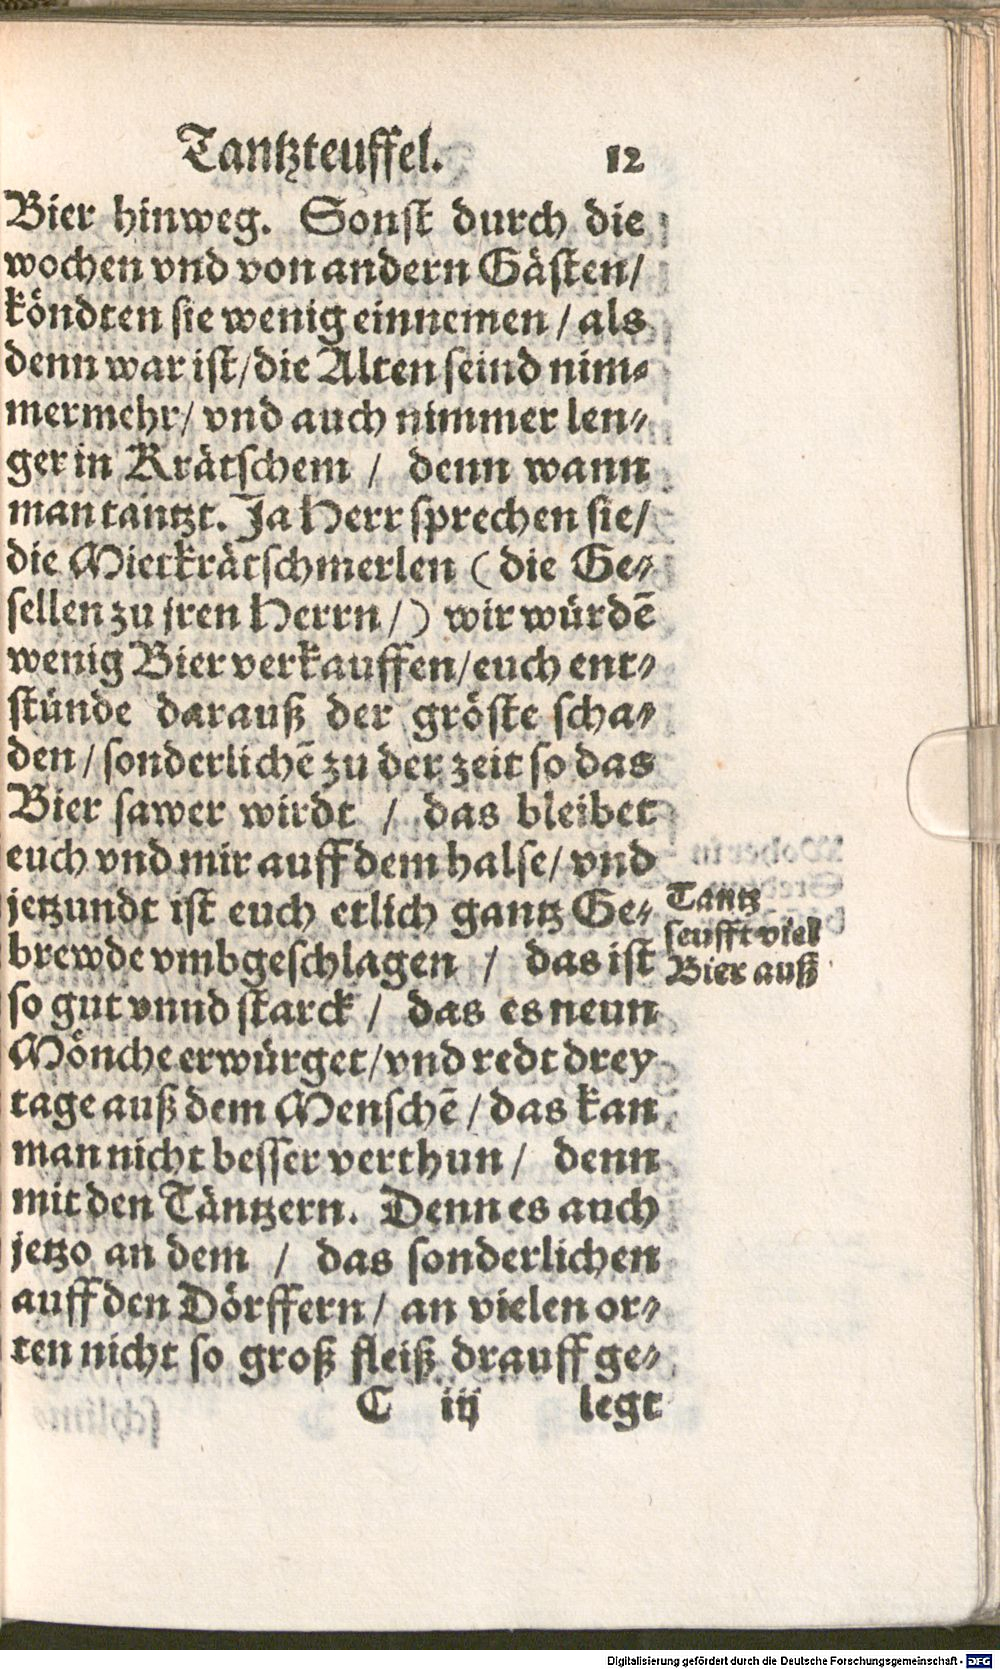 Tantzteuffel. 12
Bier hinweg. Sonst durch die
wochen vnd von andern Gästen/
köndten sie wenig einnemen / als
denn war ist/die Alten seind nim⸗
mermehr/ vnd auch nimmer len⸗
ger in Krätschem / denn wann
man tantzt. Ja Herr sprechen sie/
die Mietkrätschmerlen ( die Ge⸗
sellen zu jren Herrn/) wir würdẽ
wenig Bier verkauffen/euch ent⸗
stünde darauß der gröste scha⸗
den/sonderlichẽ zu der zeit so das
Bier sawer wirdt / das bleibet
euch vnd mir auff dem halse/ vnd
jetzundt ist euch etlich gantz Ge⸗
brewde vmbgeschlagen / das ist
so gut vnnd starck / das es neun
Mönche erwürget/vnd redt drey
tage auß dem Menschẽ / das kan
man nicht besser verthun / denn
mit den Täntzern. Denn es auch
jetzo an dem / das sonderlichen
auff den Dörffern / an vielen or⸗
ten nicht so groß fleiß drauff ge⸗
C iij legt
Tantz
seufft viel
Bier auß
Digitalisierung gefördert durch die Deutsche Forschungsgemeinschaft - DFG